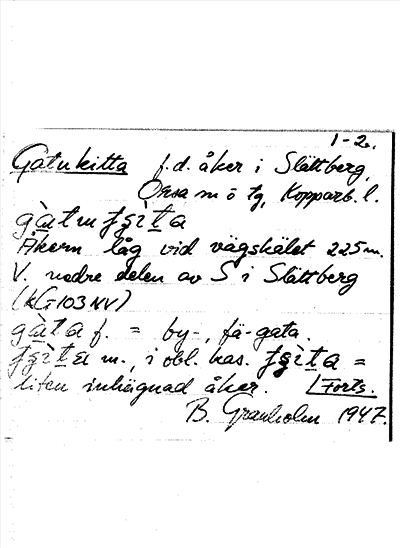 1-2.
Gatukitta f.d. åker i Slättberg,
Orsa sn ö tg, Kopparb. l.
Åkern låg vid vägskälet 225 m.
V. nedre delen av S i Slättberg
(kG=103 NV)
gàta f. = by-, fä-gata.
m., i obl. kas. =
liten inhägnad åker. Forts.
B. Granholm 1947.